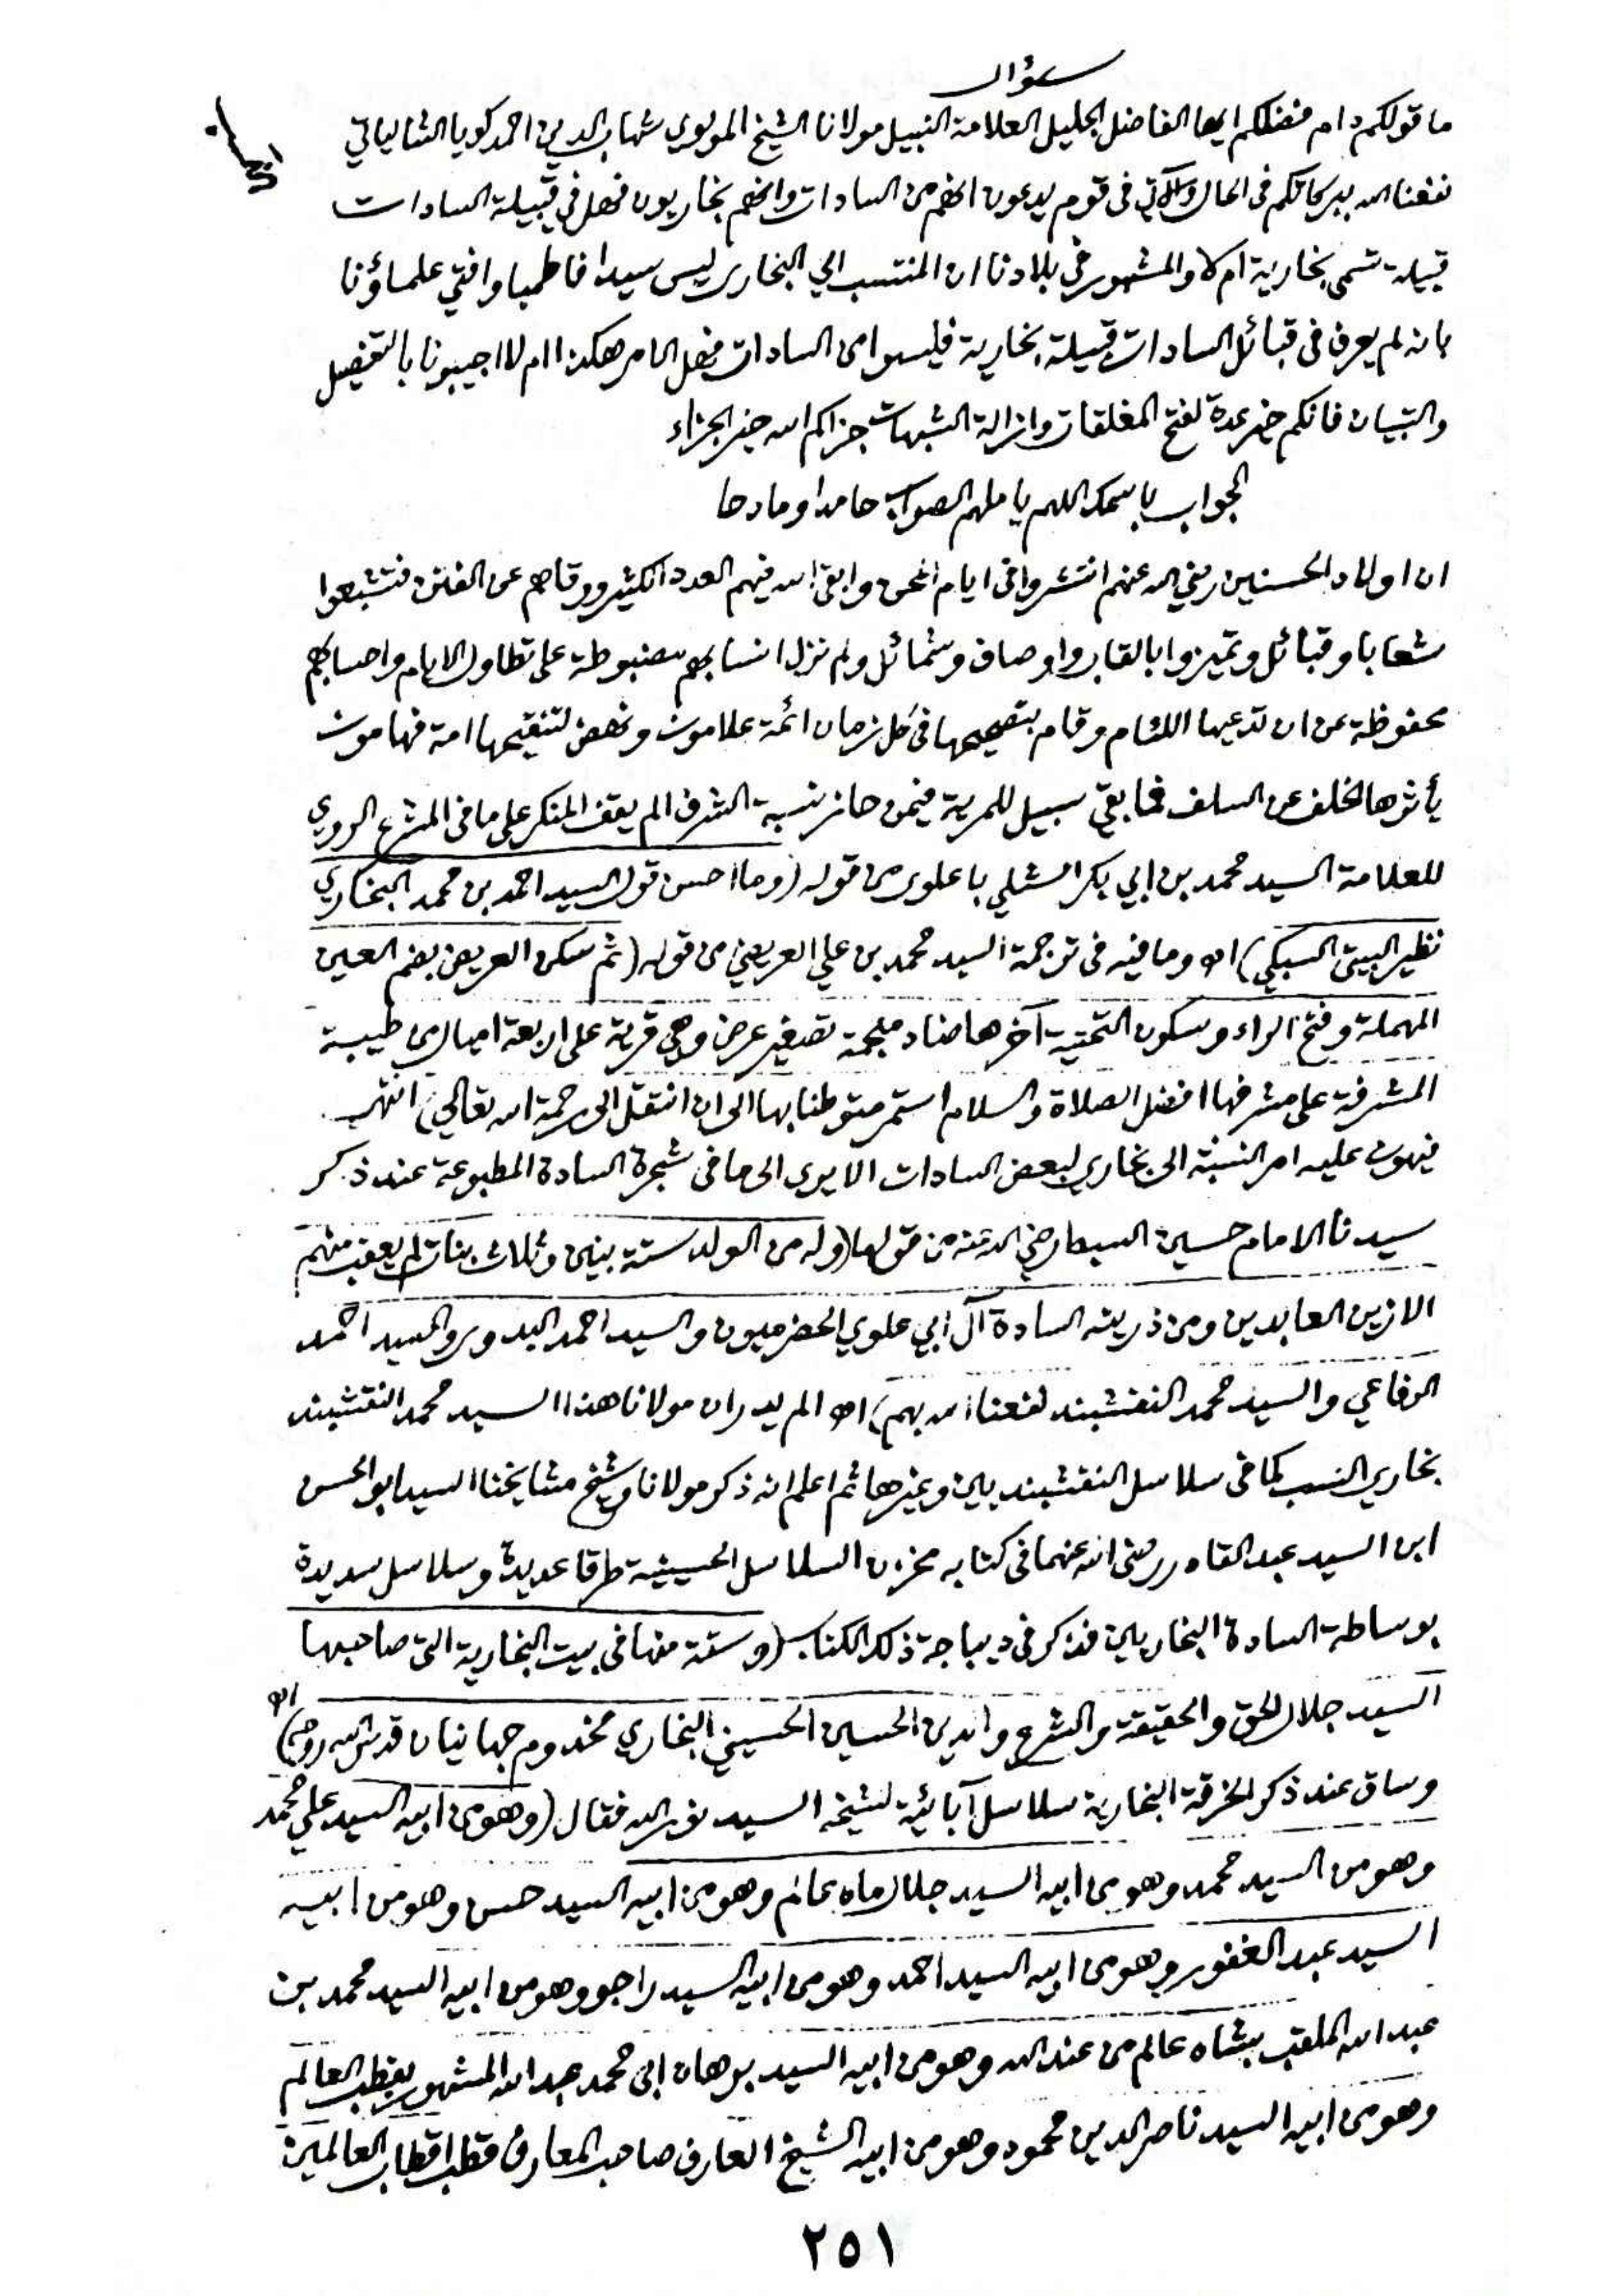 سؤال
ما قولكم دام فضلكم ايها الفاضل الجليل العلامة النبيل مولانا الشيخ المولوي شهاب الدين احمد كويا الشالياتي
نفعنا الله ببركاتكم في الحال والآتي في قوم يدعون انهم من السادات وانهم بخاريون فهل في قبيلة السادات
قبيلة تسمى بخارية ام لا والمشهور في بلادنا ان المنتسب الي البخارى ليس سيدا فاطميا وافتي علماؤنا
بانه لم يعرف في قبائل السادات قبيلة بخارية فليسوا من السادات فهل الامر هكذا ام لا اجيبونا بالتفصيل
والتبيان فانكم خير عدة لفتح المغلقات وازالة الشبهات جزاكم الله خير الجزاء
الجواب باسمك اللهم يا ملهم الصواب حامدا ومادحا
ان اولاد الحسنين رضي الله عنهم انتشروا في ايام المحن وابقى الله فيهم العدد الكثير ووقاهم عن الفتن فتشعبوا
شعابا وقبائل وتميزوا بالقاب واوصاف وشمائل ولم تزل انسابهم مضبوطة على تطاول الايام واحسابهم
محفوظة عن ان تدعيها اللئام وقام بتصحيحها في كل زمان ائمة علامون ونهض لتنقيحها امة فهامون
يأثرها الخلف عن السلف فما بقي سبيل للمرية فيمن حاز نسبة الشرف الم يقف المنكر على ما في المشرع الروي
للعلامة السيد محمد بن ابي بكر الشلي باعلوى من قوله (وما احسن قول السيد احمد بن محمد البخاري
نظير البيت السبكي) اه وما فيه في ترجمة السيد محمد بن علي العريضي من قوله (ثم سكن العريض بضم العين
المهملة وفتح الراء وسكون التحتية آخرها ضاد معجمة تصغير عرض وهي قرية على اربعة اميال من طيبة
المشرفة على مشرفها افضل الصلاة والسلام استمر متوطنا بها الى ان انتقل الى رحمة الله تعالي) انتهى
فيهون عليه امر النسبة الى بخارى لبعض السادات الا يرى الى ما في شجرة السادة المطبوعة عند ذكر
سيدنا الامام حسين السبط رضي الله عنه من قولها (وله من الولد ستة بنين وثلاث بنات لم يعقب منهم
الا زين العابدين ومن ذريته السادة آل ابي علوي الحضرميون والسيد احمد البدوى والسيد احمد
الرفاعي والسيد محمد النقشبند نفعنا الله بهم) اه الم يدر ان مولانا هذا السيد محمد النقشبند
بخاري النسب كما في سلاسل النقشبنديين وغيرها ثم اعلم انه ذكر مولانا وشيخ مشايخنا السيد ابو الحسن
ابن السيد عبد القادر رضى الله عنهما في كتابه مخزن السلاسل الحسينية طرقا عديدة وسلاسل سديدة
بوساطة السادة البخاريين فذكر في ديباجة ذلك الكتاب (وستة منها في بيت البخارية التى صاحبها
السيد جلال الحق والحقيقة والشرع والدين الحسين الحسيني البخاري مخدوم جهانيان قدس الله روحه) اه
وساق عند ذكر الخرقة البخارية سلاسل آبائية لشيخه السيد نور الله فقال (وهو من ابيه السيد علي محمد
وهو من السيد محمد وهو من ابيه السيد جلال ماه عالم وهو من ابيه السيد حسن وهو من ابيه
السيد عبد الغفور وهو من ابيه السيد احمد وهو من ابيه السيد راجو وهو من ابيه السيد محمد بن
عبد الله الملقب بشاه عالم من عند الله وهو من ابيه السيد برهان ابى محمد عبد الله المشهور بقطب العالم
وهو من ابيه السيد ناصر الدين محمود وهو من ابيه الشيخ العارف صاحب المعارف قطب اقطاب العالمين
٢٥١